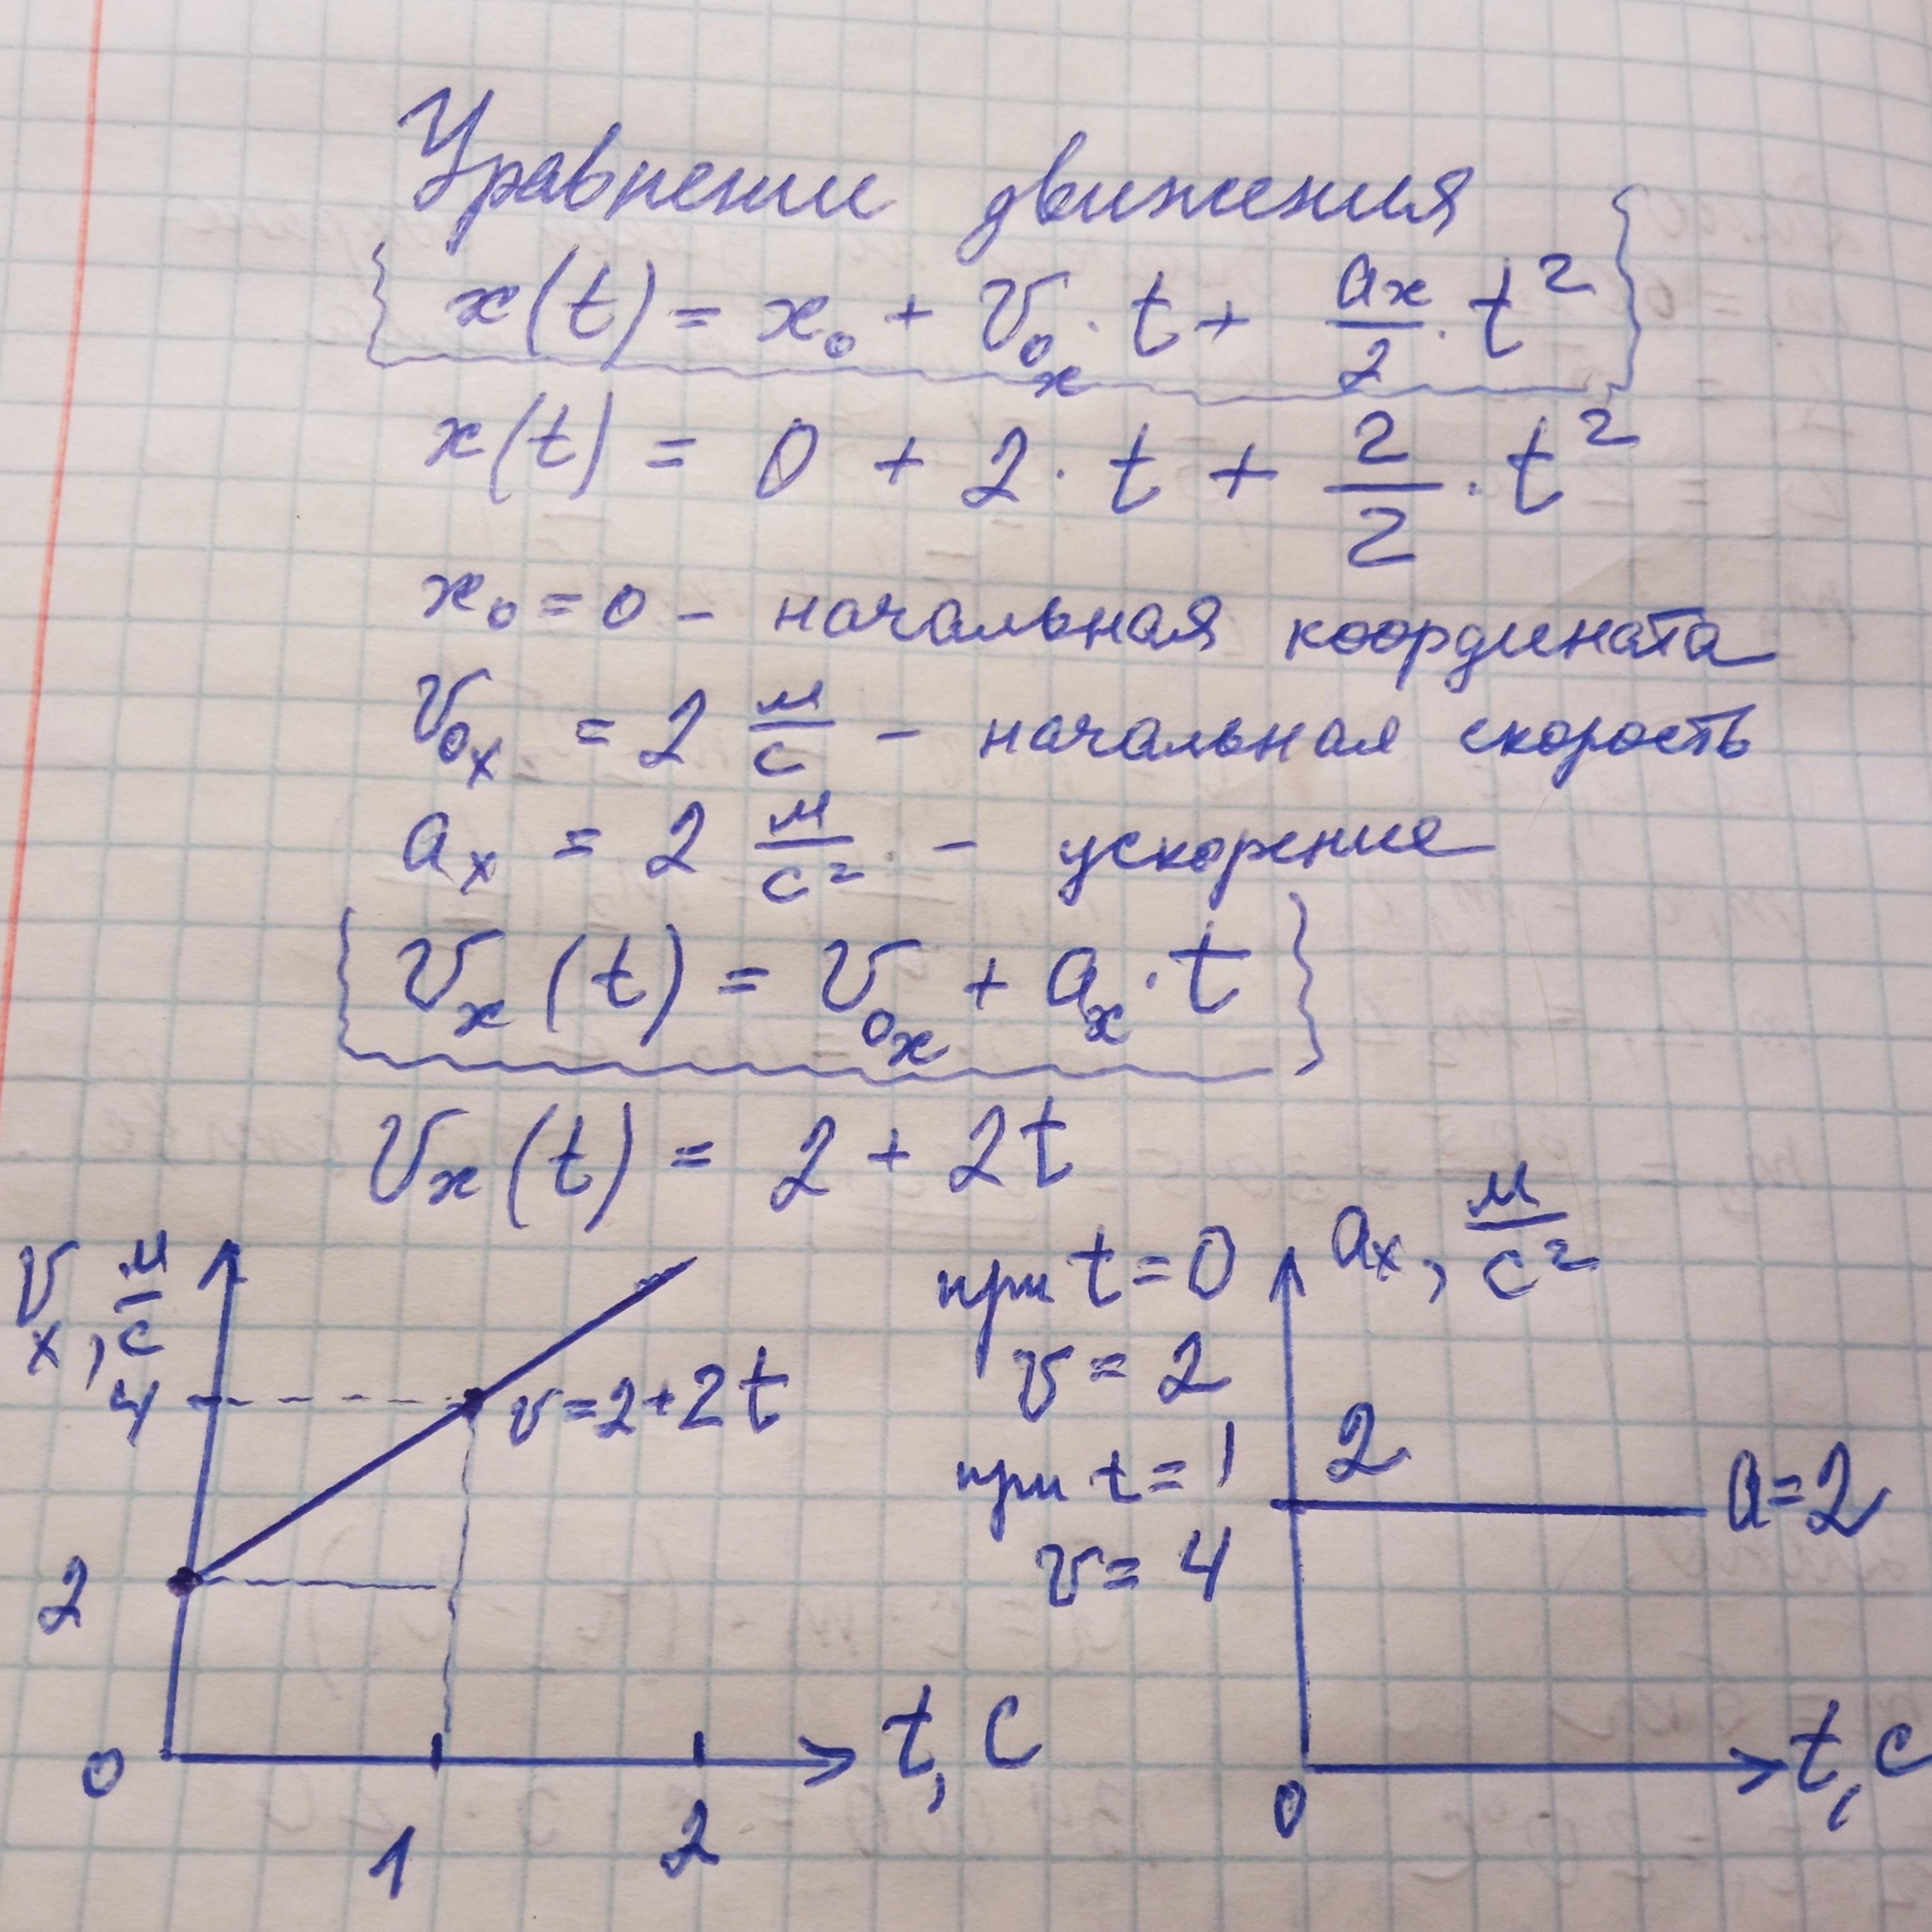 Уравнение движения
x(t) = x₀ + v₀ₓ · t + aₓ/2 · t²
x(t) = 0 + 2 · t + 2/2 · t²
x₀ = 0 - начальная координата
v₀ₓ = 2 м/с - начальная скорость
aₓ = 2 м/с² - ускорение
vₓ(t) = v₀ₓ + aₓ · t
vₓ(t) = 2 + 2t
vₓ, м/с
4
v = 2 + 2t
2
0
1
2
t, с
при t = 0
v = 2
при t = 1
v = 4
aₓ, м/с²
2
a = 2
0
t, с